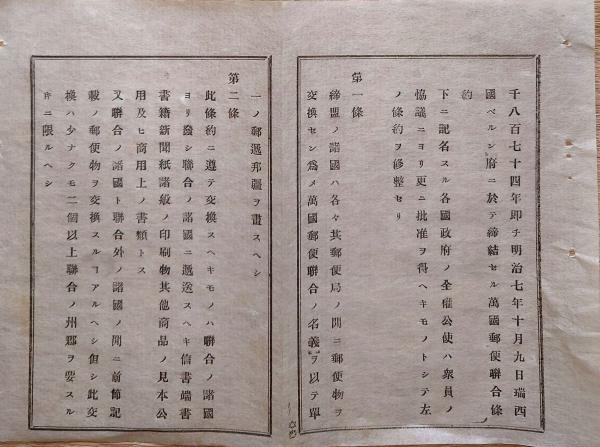 千八百七十四年即チ明治七年十月九日瑞西
國ベルン府ニ於テ締結セル萬國郵便聯合條
約
下ニ記名スル各國政府ノ全權公使ハ衆員ノ
恊議ニヨリ更ニ批准ヲ得ヘキモノトシテ左
ノ條約ヲ修整セリ
第一條
締盟ノ諸國ハ各々其郵便局ノ間ニ郵便物ヲ
交換セン爲メ萬國郵便聯合ノ名義ヲ以テ單
一ノ郵遞邦疆ヲ畫スヘシ
第二條
此條約ニ遵テ交換スヘキモノハ聯合ノ諸國
ヨリ發シ聯合ノ諸國ニ遞送スヘキ信書端書
書籍新聞紙諸般ノ印刷物其他商品ノ見本公
用及ヒ商用上ノ書類トス
又聯合ノ諸國ト聯合外ノ諸國ノ間ニ前節記
載ノ郵便物ヲ交換スルヿアルヘシ但シ此交
換ハ少ナクモ二個以上聯合ノ州郷ヲ要スル
キニ限ルヘシ